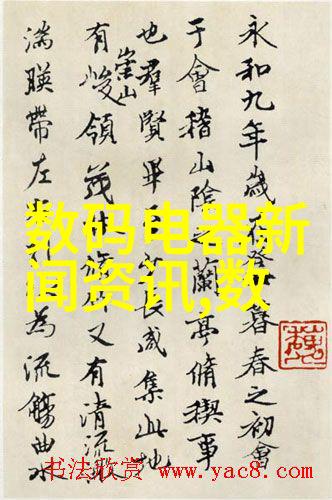 永和九年歲在癸暮春之初會
于會稽山陰蘭亭脩稧事
也羣賢畢至少長咸集此地
有崇山峻領茂林脩竹又有清流激
湍暎帶左右引以為流觴曲水
数码电器新
闻资讯,数
书法欣赏 www.yac8.com